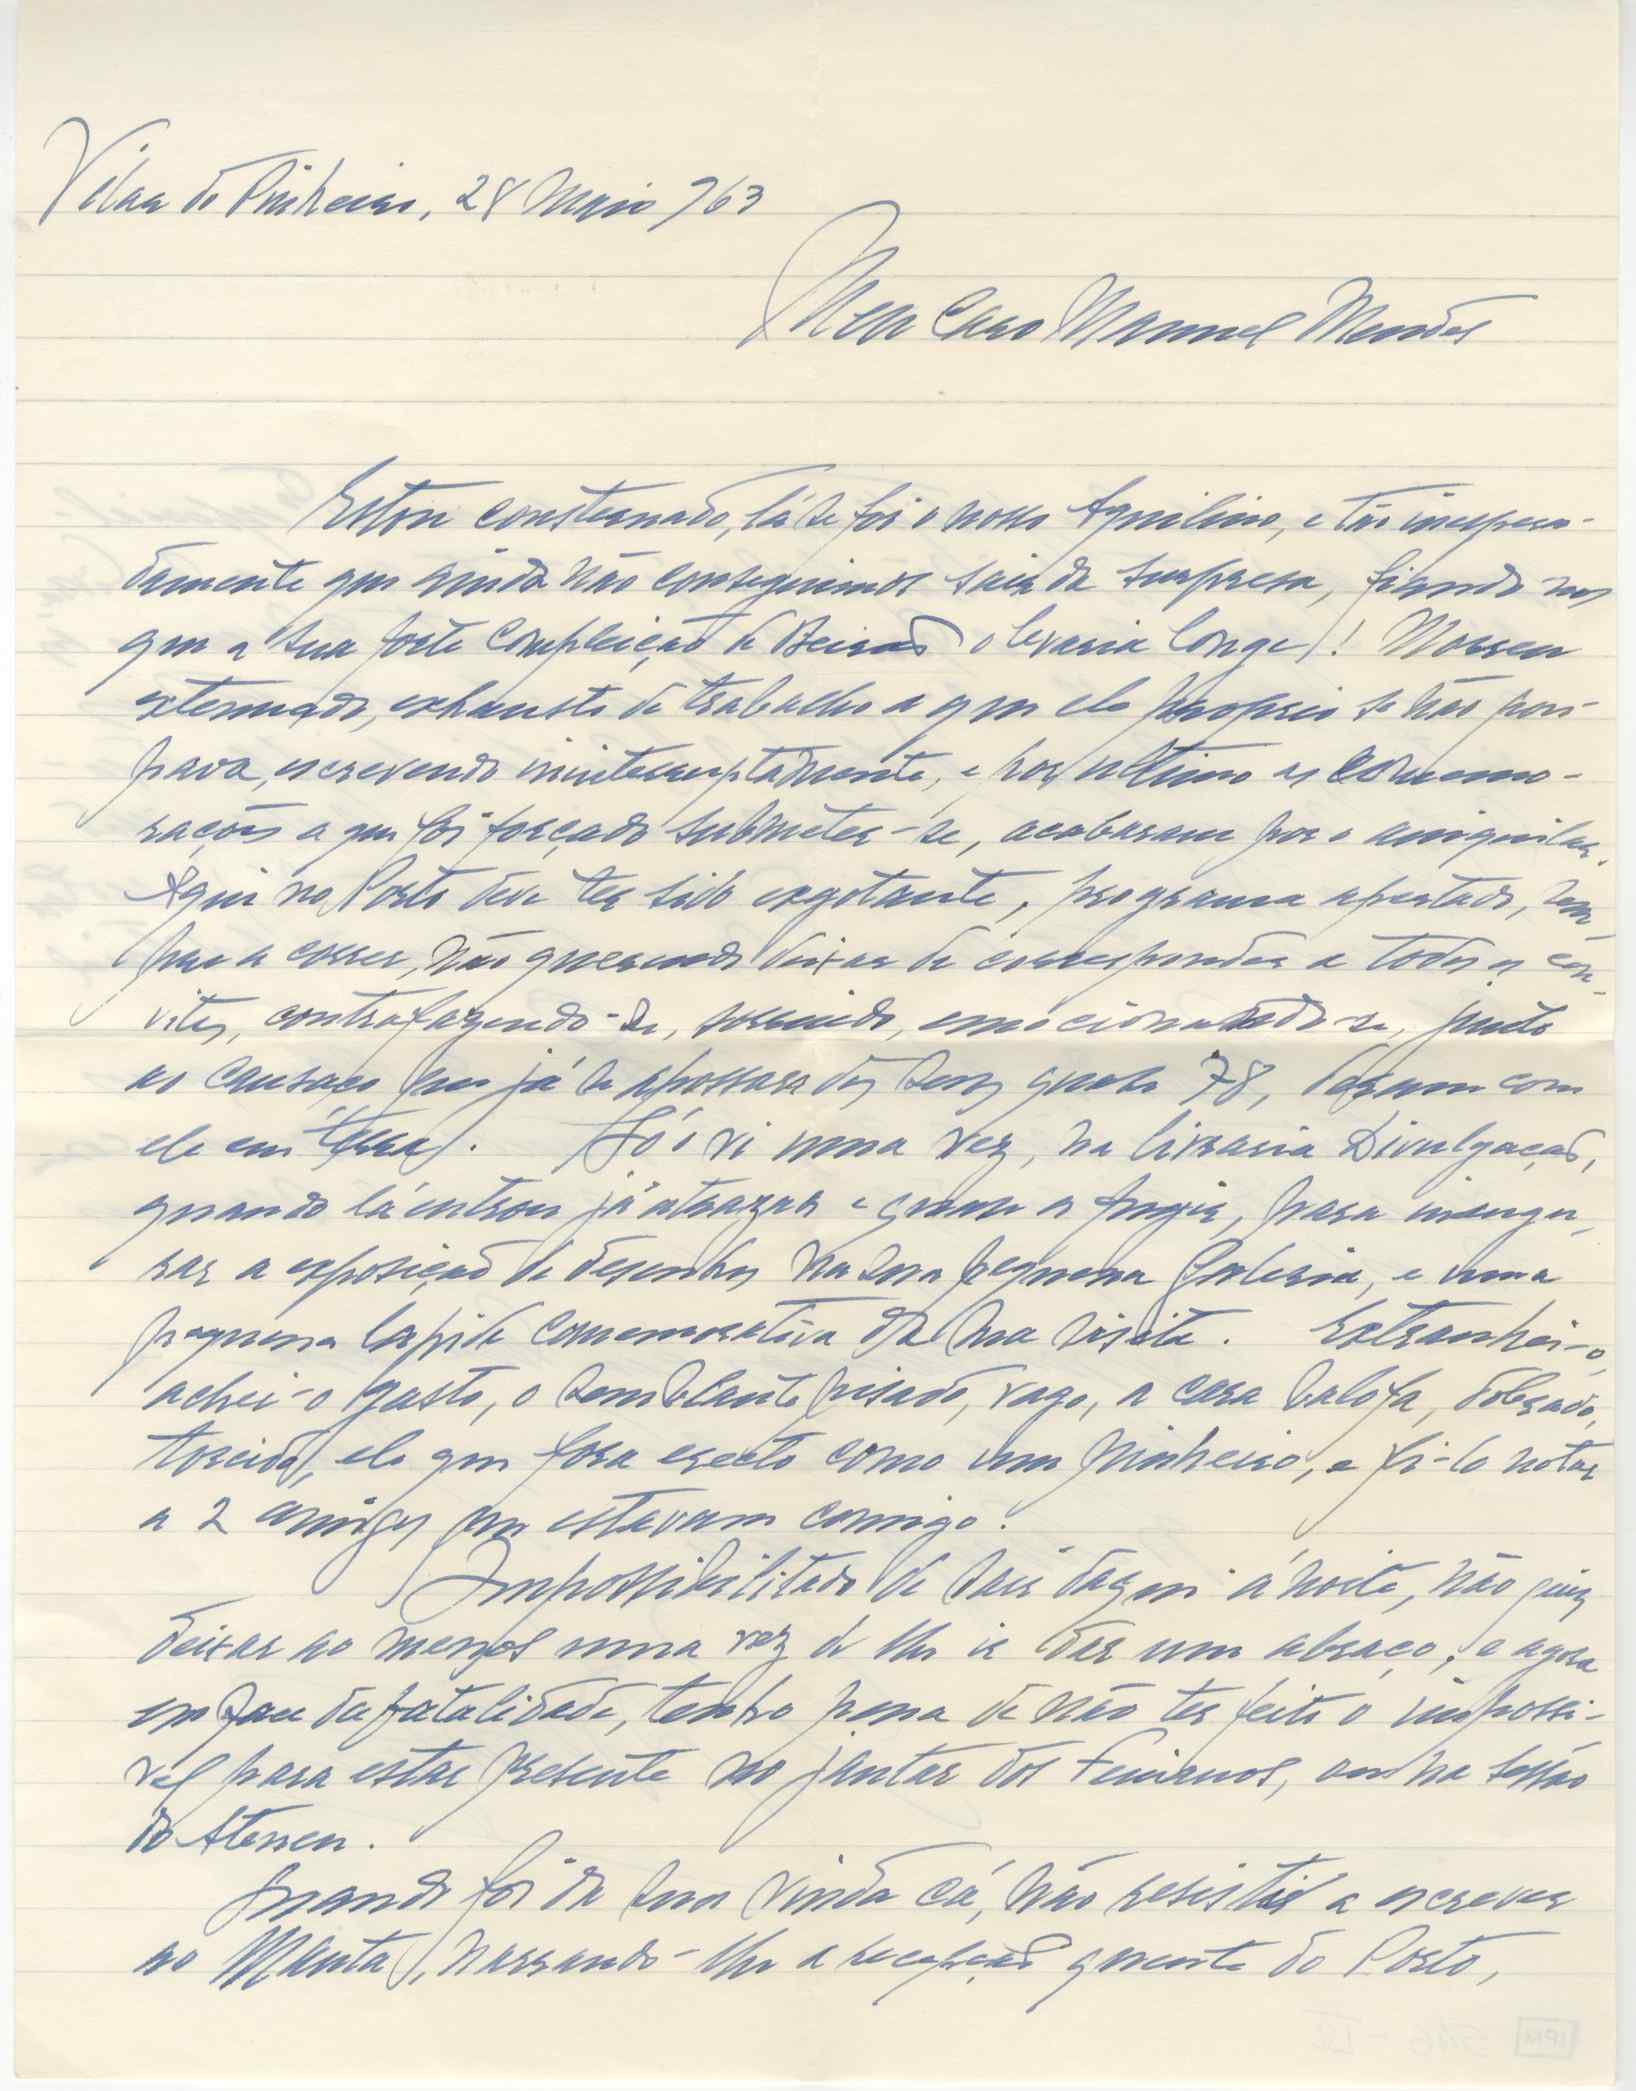 Vilar do Pinheiro, 28 Maio 963
Meu Caro Manuel Mendes
Estou consternado, lá se foi o nosso Aquilino, e tão inespera-
damente que ainda não conseguimos sair da surpresa, fiando nos
que a sua forte compleição de Beirão o levaria longe! Morreu
extenuado, exhausto de trabalho a que ele proprio se não pou-
pava, escrevendo ininterruptamente, e por ultimo as comemo-
rações a que foi forçado submeter-se, acabaram por o aniquilar.
Aqui no Porto deve ter sido exgotante, programa apertado, tem-
po a correr, não querendo deixar de corresponder a todos os con-
vites, contrafazendo-se, sorrindo, emocionando-se, junto
ao cansaço que já se apossara dos seus quasi 78, deram com
ele em terra. Só o vi uma vez, na livraria Divulgação,
quando lá entrou já atrazado e quasi a fugir, para inaugu-
rar a exposição de desenhos na sua pequena Galeria, e uma
pequena lapide comemorativa da sua visita. Extranhei-o,
achei-o gasto, o semblante pisado, vago, a cara balofa, dobrado,
torcido, ele que fora erecto como um pinheiro, e fi-lo notar
a 2 amigos que estavam comigo.
Impossibilitado de sair daqui á noite, não quiz
deixar ao menos uma vez de lhe ir dar um abraço, e agora
em face da fatalidade, tenho pena de não ter feito o impossi-
vel para estar presente no jantar dos Fenianos, ou na sessão
do Ateneu.
Quando foi da sua vinda cá, não resisti a escrever
ao Manta, narrando-lhe a recepção quente do Porto,